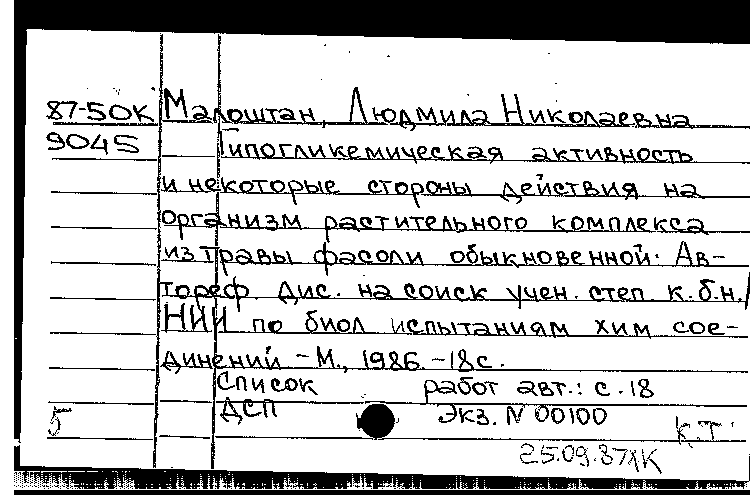 87-5OK Малоштан, Людмила Николаевна
9045 Гипогликемическая активность
и некоторые стороны действия на
организм растительного комплекса
из травы фасоли обыкновенной. Ав-
тореф. дис. на соиск учен. степ к.б.н./
НИИ по биол испытаниям хим сое-
динений - М., 1986. -18с.
Список работ авт.: с. 18
5 ДСП Экз. N 00100
К.Т.
25.09.87